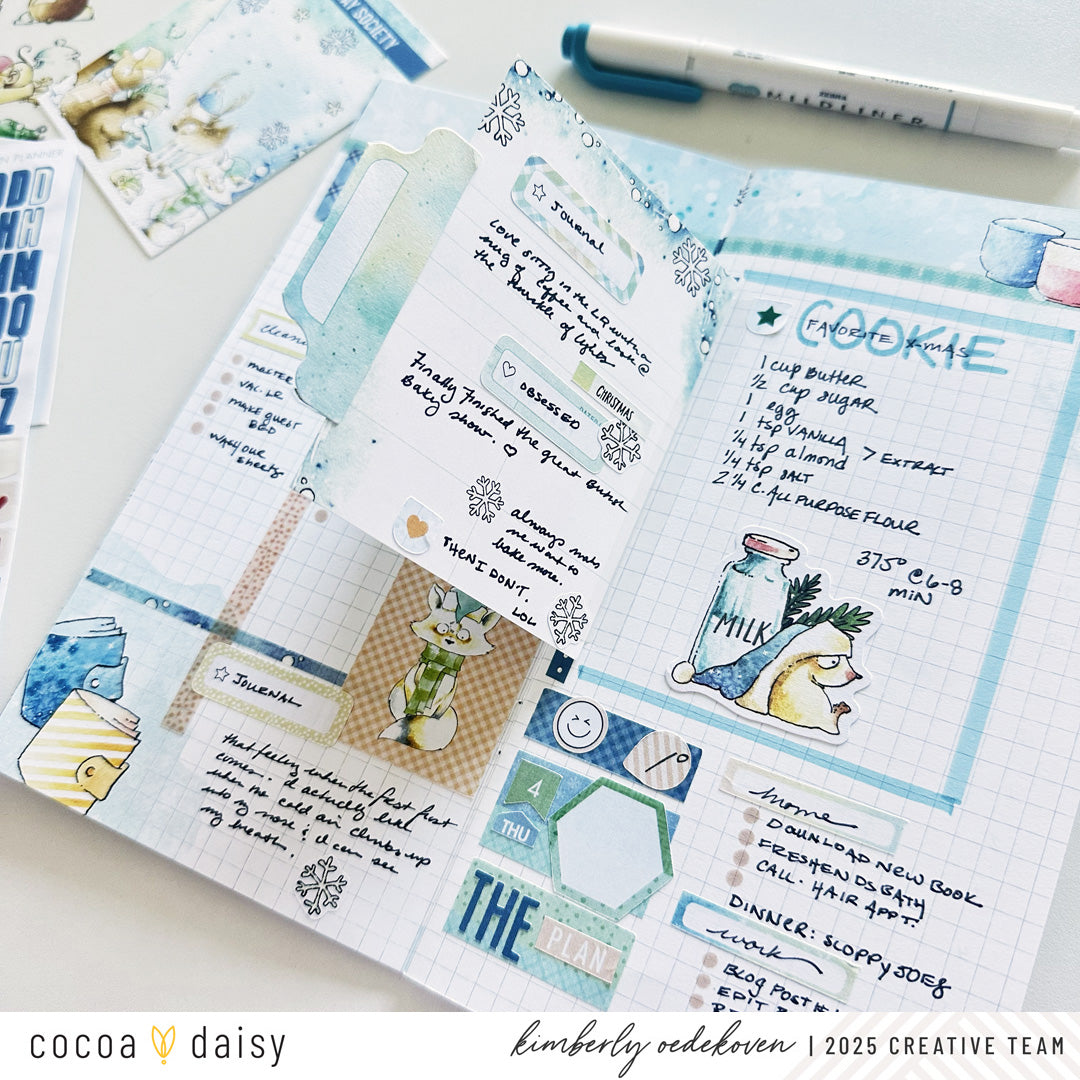 SOCIETY
PLANNER
ZEBRA
MILDLINER
cleaning
MASTER
VAC. LR
MAKE GUEST
BED
WASH OUR
SHEETS
JOURNAL
Love sitting in the LR with a
mug of coffee and look @
the twinkle of lights
OBSESSED
CHRISTMAS
Finally finished the great British
Baking show. ♡
always makes
me want to
bake more.
THEN I DON'T.
LOL
JOURNAL
that feeling when the first frost
comes. I actually like
when the cold air climbs up
into my nose & I can see
my breath.
COOKIE
FAVORITE X-MAS
1 cup BUTTER
1/2 cup SUGAR
1 egg
1 tsp VANILLA > EXTRACT
1/4 tsp almond
1/4 tsp SALT
2 1/4 C. ALL PURPOSE FLOUR
375° @ 6-8
MIN
MILK
4
THU
THE
PLAN
home
DOWNLOAD NEW BOOK
FRESHEN DS BATH
CALL. HAIR APPT.
DINNER: SLOPPY JOES
work
BLOG POST #1
EDIT
cocoa daisy
kimberly oedekoven | 2025 CREATIVE TEAM